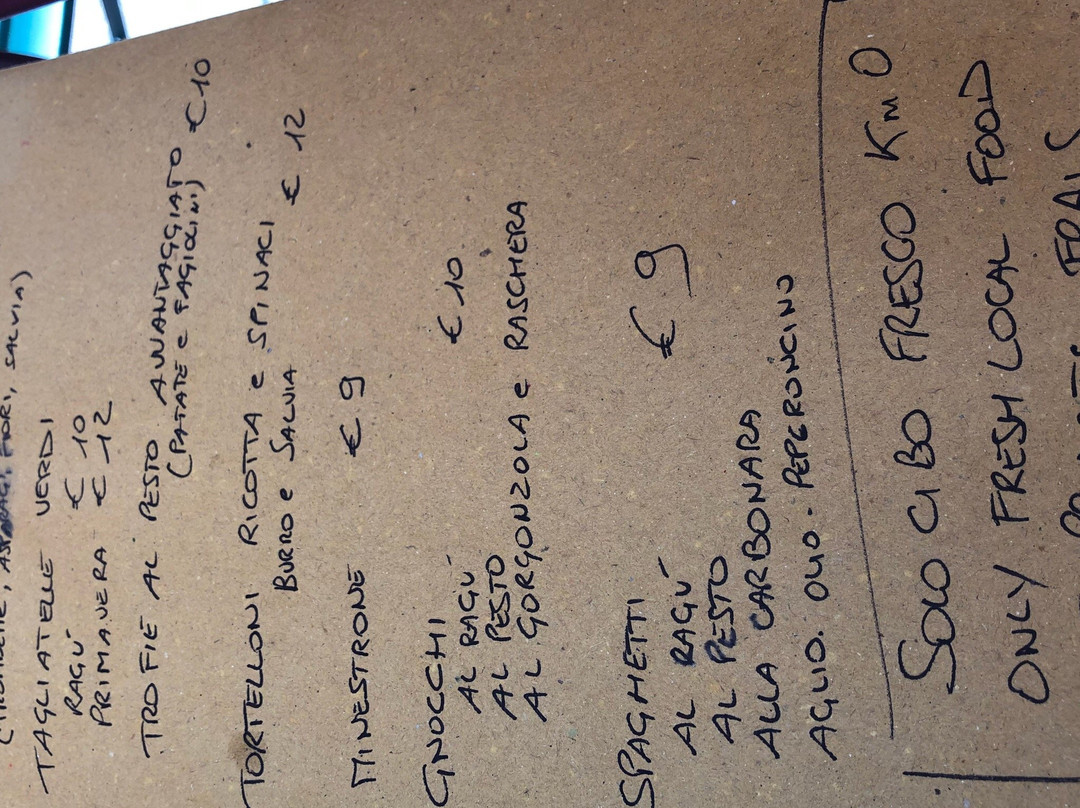 ASPARAGI, FIORI, SALVIA)
TAGLIATELLE VERDI
RAGÚ € 10
PRIMAVERA € 12
TROFIE AL PESTO AVVANTAGGIATO
(PATATE e FAGIOLINI) € 10
TORTELLONI RICOTTA e SPINACI
BURRO e SALVIA € 12
MINESTRONE € 9
GNOCCHI € 10
AL RAGÚ
AL PESTO
AL GORGONZOLA e RASCHERA
SPAGHETTI € 9
AL RAGÚ
AL PESTO
ALLA CARBONARA
AGLIO. OLIO. PEPERONCINO
SOLO CIBO FRESCO Km 0
ONLY FRESH LOCAL FOOD